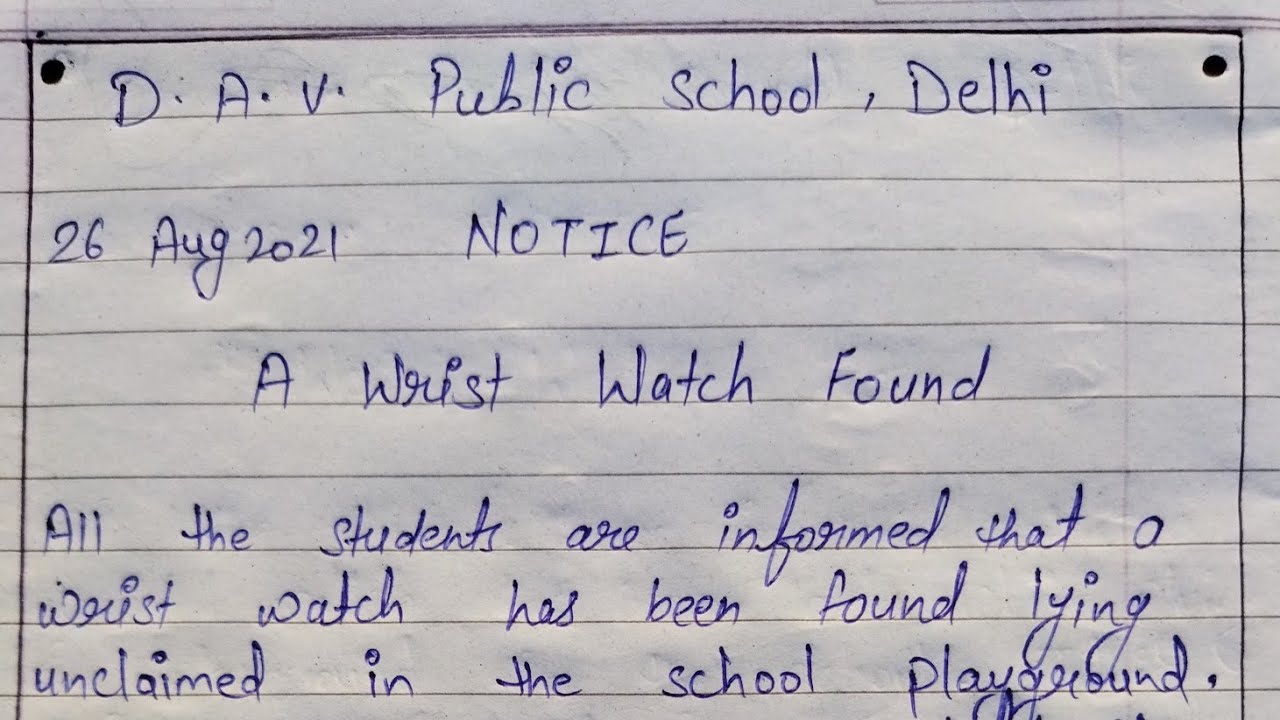 D. A. V. Public School, Delhi
26 Aug 2021 NOTICE
A Wrist Watch Found
All the students are informed that a
wrist watch has been found lying
unclaimed in the school playground.